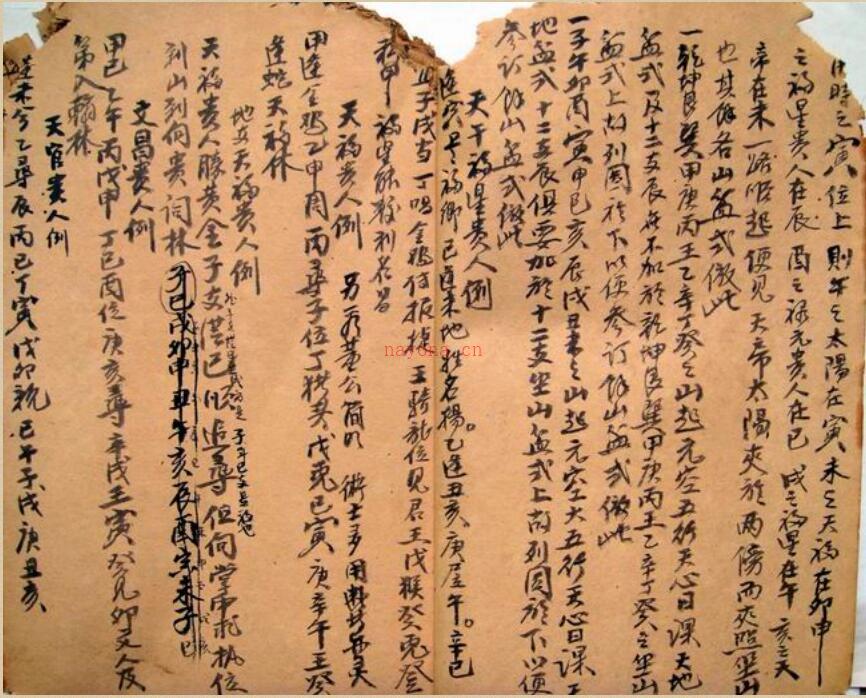 時之寅位上則午之太陽在寅未之天福在卯申
之福星貴人在辰酉之祿元貴人在巳戌之福星在午亥之天
帝在未一路順起便見天帝太陽夾於兩傍而夾照坐山
也其餘各山盆式倣此
一乾坤艮巽甲庚丙壬乙辛丁癸之山起元空五行天心日課天地
盆式及十二支辰無不加於乾坤艮巽甲庚丙壬乙辛丁癸之坐山
盆式上故列圖於下以便參訂餘山盆式倣此
一子午卯酉寅申巳亥辰戌丑未之山起元空大五行天心日課
地盆式十二支辰俱要加於十二支坐山盆式上故列圖於下以便
參訂餘山盆式倣此
天干福星貴人例
逢寅是福鄉己逢未地姓名揚。乙逢丑亥。庚居午。辛巳
子戌當丁唱金雞侍報壬騎龍位見君王戊猴癸兔登
福星能發利名
天福貴人例 另有董公簡 術士多用
甲逢金雞乙申同丙尋子位丁猪戊兔己寅庚辛午壬癸
逢蛇天福休
地支天福貴人例 子年巳支是福也
天福貴人勝黃金子支從巳順追尋但向堂中
到山到向貴詞林 子巳戌卯申丑午亥辰酉寅未子巳
文昌貴人例
甲巳乙午丙戊申丁己酉位庚亥尋辛戌壬寅癸見卯文人
第入翰林
天官貴人例
逢未兮乙尋辰丙巳丁寅戊卯親己 庚丑亥
nayona.cn